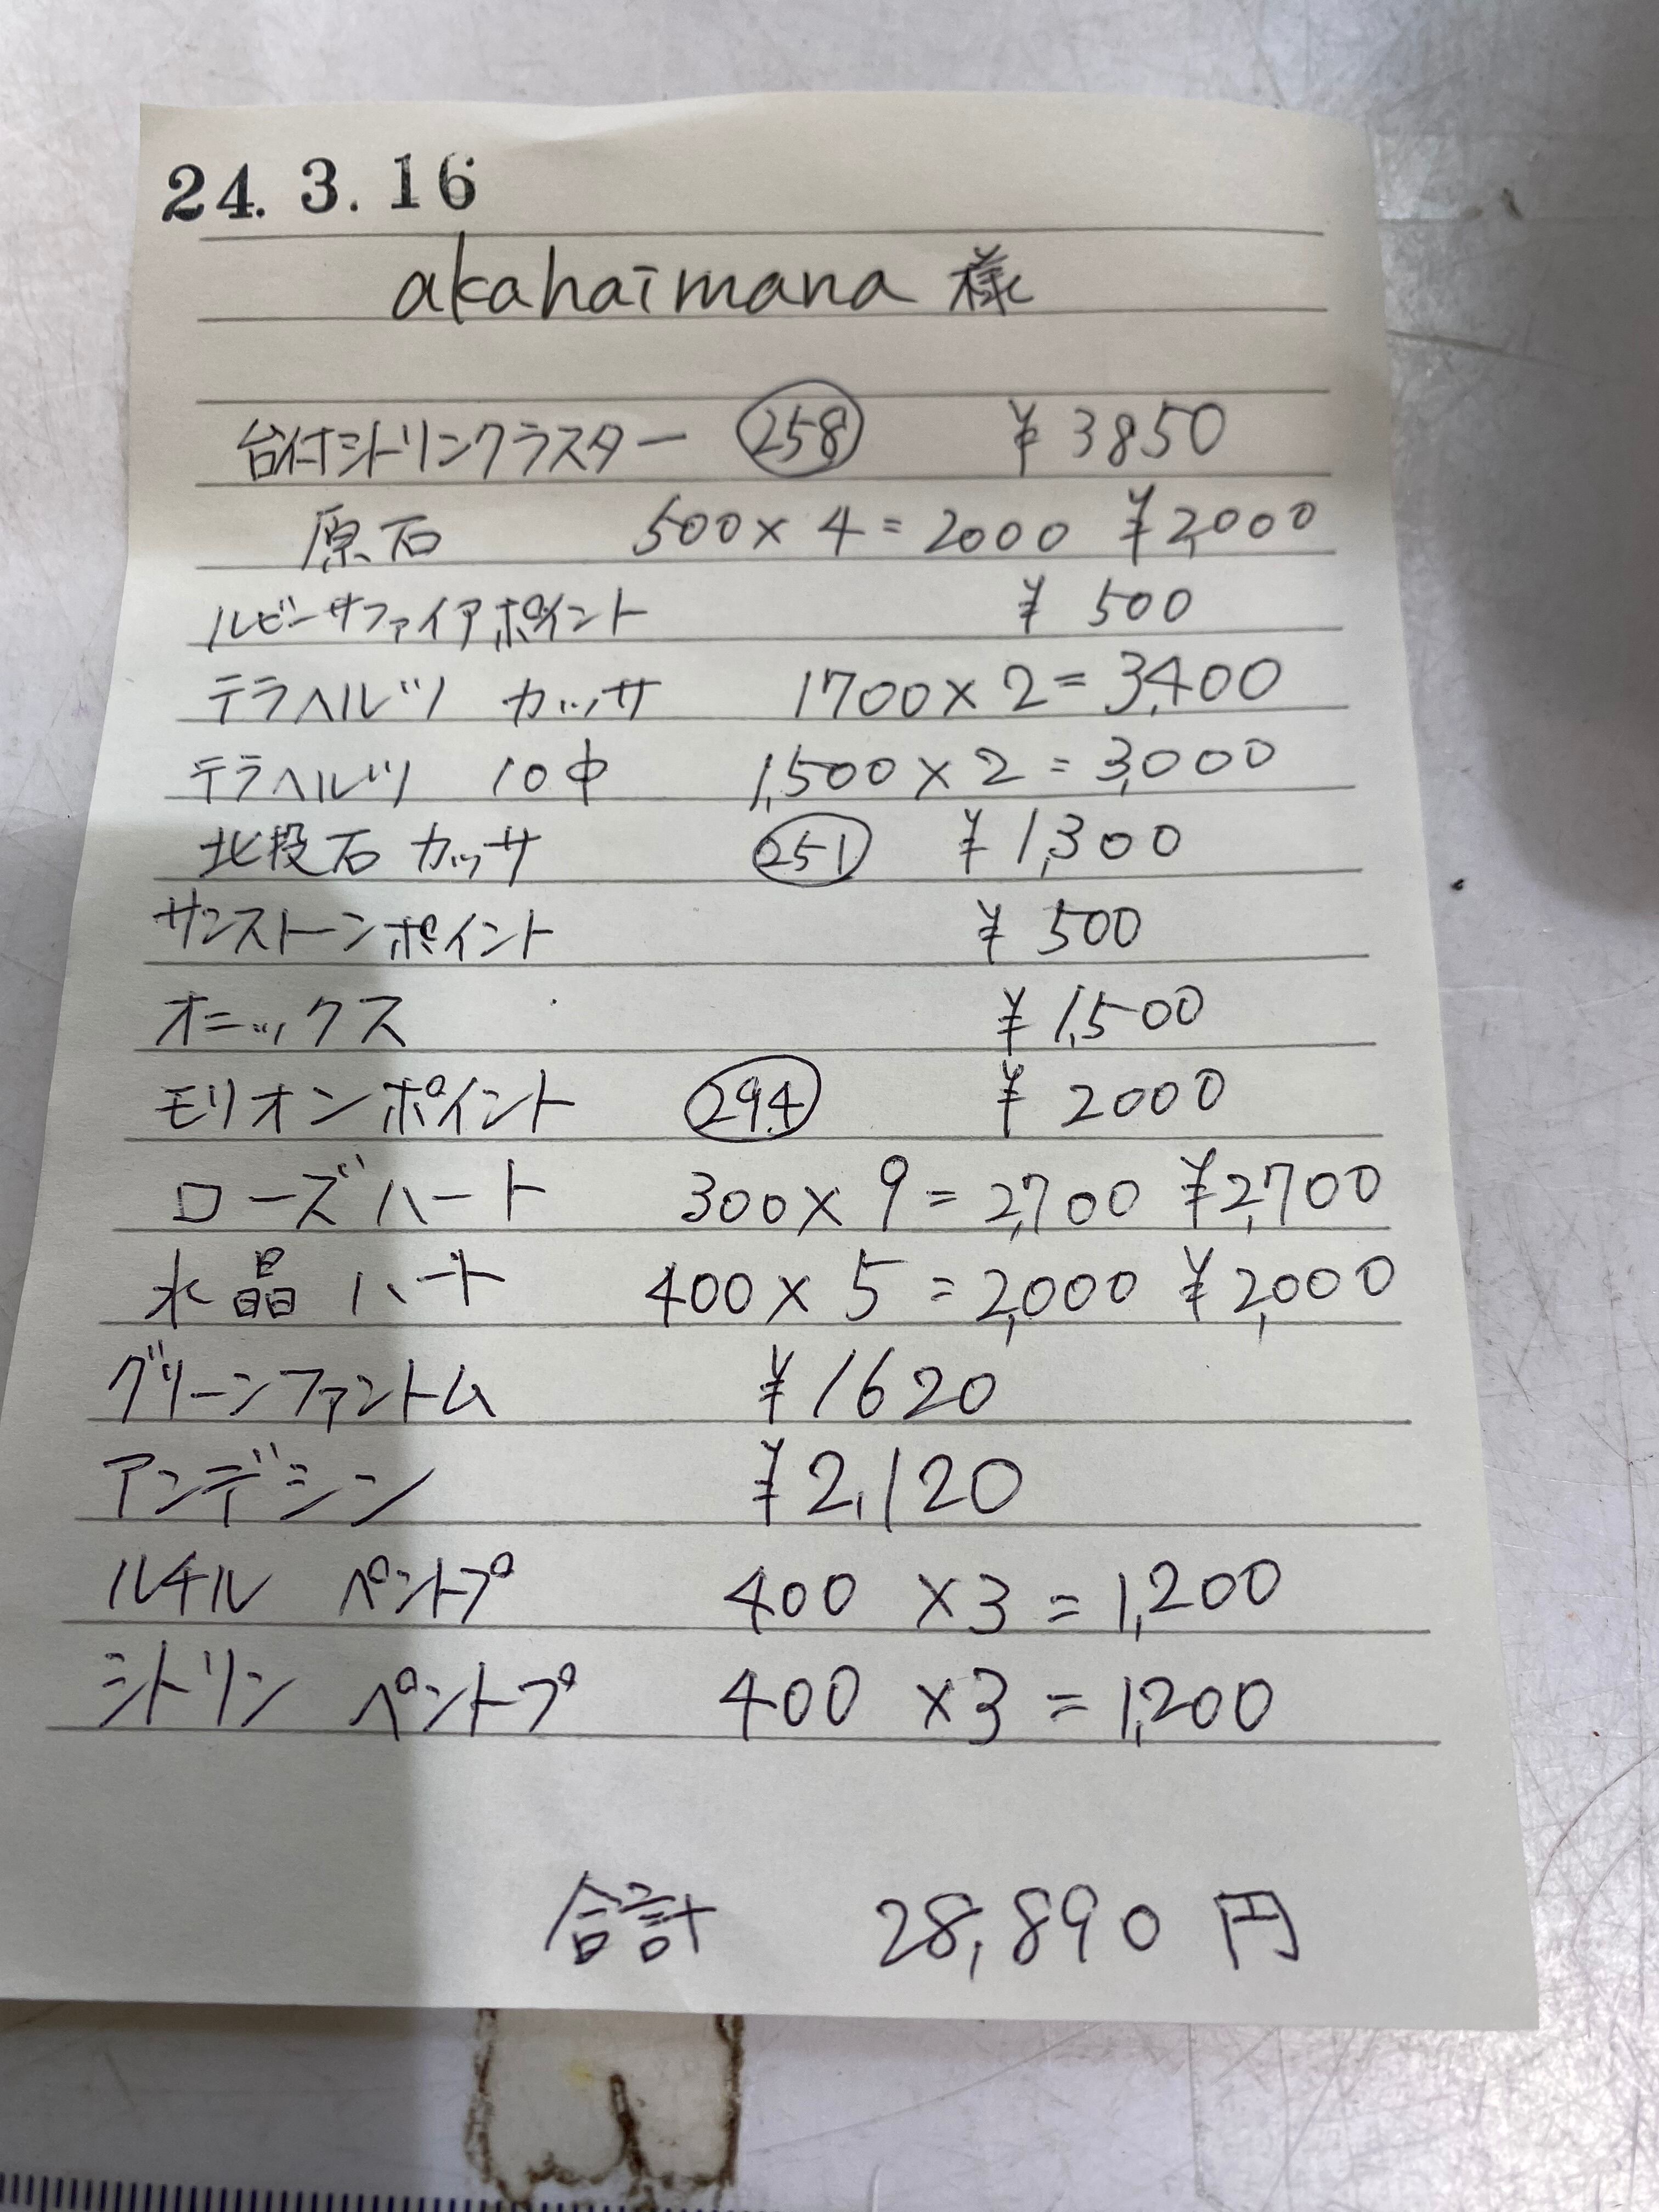 24.3.16
akahaimana 様
台付シトリンクラスター 258 ¥3850
原石 500×4=2000 ¥2,000
ルビーサファイアポイント ¥500
テラヘルツ カッサ 1700×2=3,400
テラヘルツ 10中 1,500×2=3,000
北投石 カッサ 251 ¥1,300
サンストーンポイント ¥500
オニックス ¥1,500
モリオンポイント 29.4 ¥2000
ローズハート 300×9=2,700 ¥2,700
水晶ハート 400×5=2,000 ¥2,000
グリーンファントム ¥1620
アンデシン ¥2,120
ルチル ペントプ 400 ×3=1,200
シトリン ペントプ 400 ×3=1,200
合計 28,890円